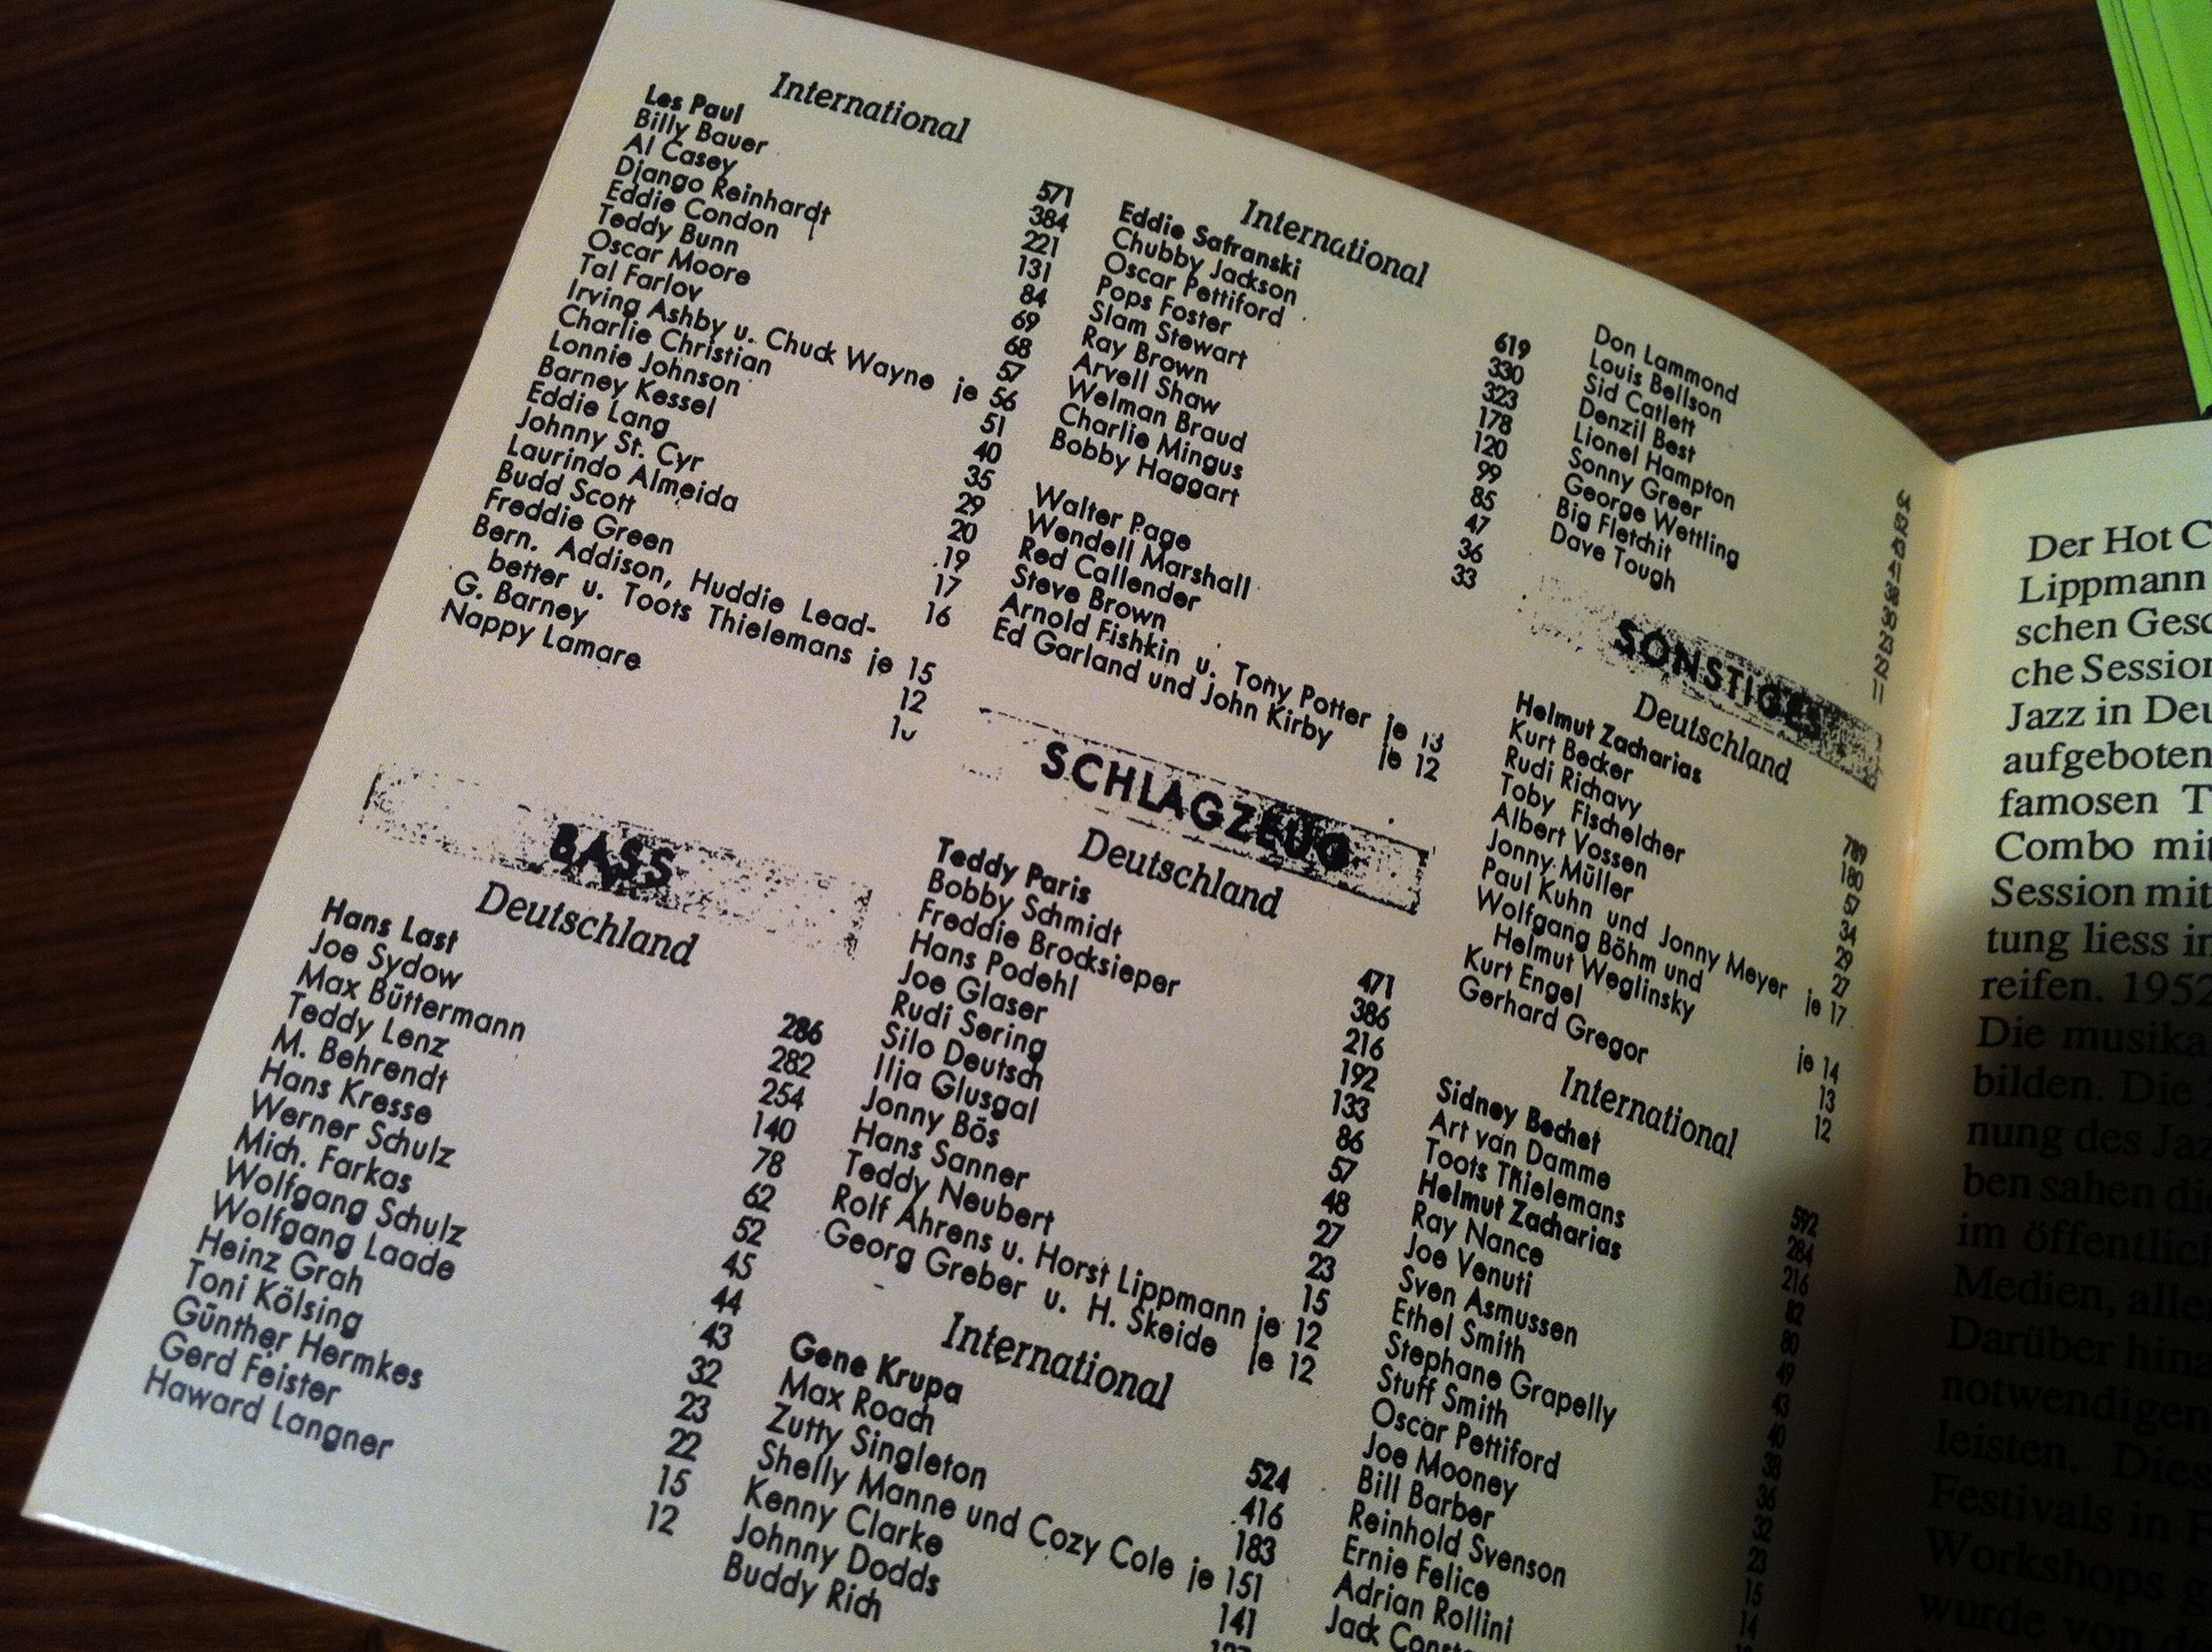 International
Les Paul 571
Billy Bauer 384
Al Casey 221
Django Reinhardt 131
Eddie Condon 84
Teddy Bunn 69
Oscar Moore 68
Tal Farlov 57
Irving Ashby u. Chuck Wayne je 56
Charlie Christian 51
Lonnie Johnson 40
Barney Kessel 35
Eddie Lang 29
Johnny St. Cyr 20
Laurindo Almeida 19
Budd Scott 17
Freddie Green 16
Bern. Addison, Huddie Lead-
better u. Toots Thielemans je 15
G. Barney 12
Nappy Lamare
BASS
Deutschland
Hans Last 286
Joe Sydow 282
Max Büttermann 254
Teddy Lenz 140
M. Behrendt 78
Hans Kresse 62
Werner Schulz 52
Mich. Farkas 45
Wolfgang Schulz 44
Wolfgang Laade 43
Heinz Grah 32
Toni Kölsing 23
Günther Hermkes 22
Gerd Feister 15
Haward Langner 12
International
Eddie Safranski 619
Chubby Jackson 330
Oscar Pettiford 323
Pops Foster 178
Slam Stewart 120
Ray Brown 99
Arvell Shaw 85
Welman Braud 47
Charlie Mingus 36
Bobby Haggart 33
Walter Page
Wendell Marshall
Red Callender
Steve Brown
Arnold Fishkin u. Tony Potter je 13
Ed Garland und John Kirby je 12
SCHLAGZEUG
Deutschland
Teddy Paris 471
Bobby Schmidt 386
Freddie Brocksieper 216
Hans Podehl 192
Joe Glaser 133
Rudi Sering 86
Silo Deutsch 57
Ilja Glusgal 48
Jonny Bös 27
Hans Sanner 23
Teddy Neubert 15
Rolf Ahrens u. Horst Lippmann je 12
Georg Greber u. H. Skeide je 12
International
Gene Krupa 524
Max Roach 416
Zutty Singleton 183
Shelly Manne und Cozy Cole je 151
Kenny Clarke 141
Johnny Dodds
Buddy Rich
Don Lammond
Louis Bellson
Sid Catlett
Denzil Best
Lionel Hampton
Sonny Greer
George Wettling
Big Fletchit
Dave Tough
SONSTIGES
Deutschland
Helmut Zacharias 789
Kurt Becker 180
Rudi Richavy 57
Toby Fischelcher 34
Albert Vossen 29
Jonny Müller 27
Paul Kuhn und Jonny Meyer je 17
Wolfgang Böhm und
Helmut Weglinsky je 14
Kurt Engel 13
Gerhard Gregor 12
International
Sidney Bechet 592
Art van Damme 284
Toots Thielemans 216
Helmut Zacharias 82
Ray Nance 80
Joe Venuti 49
Sven Asmussen 43
Ethel Smith
Stephane Grapelly
Stuff Smith
Oscar Pettiford
Joe Mooney 23
Bill Barber 15
Reinhold Svenson 14
Ernie Felice
Adrian Rollini
Jack
Der Hot
Lippmann
schen
che Session
Jazz in
aufgeboten
famosen
Combo mit
Session mit
tung liess
reifen. 1952
Die musika
bilden. Die
nung des
ben sahen
im öffentlich
Medien, alle
Darüber hina
notwendigen
leisten. Dies
Festivals in
Workshops
wurde von